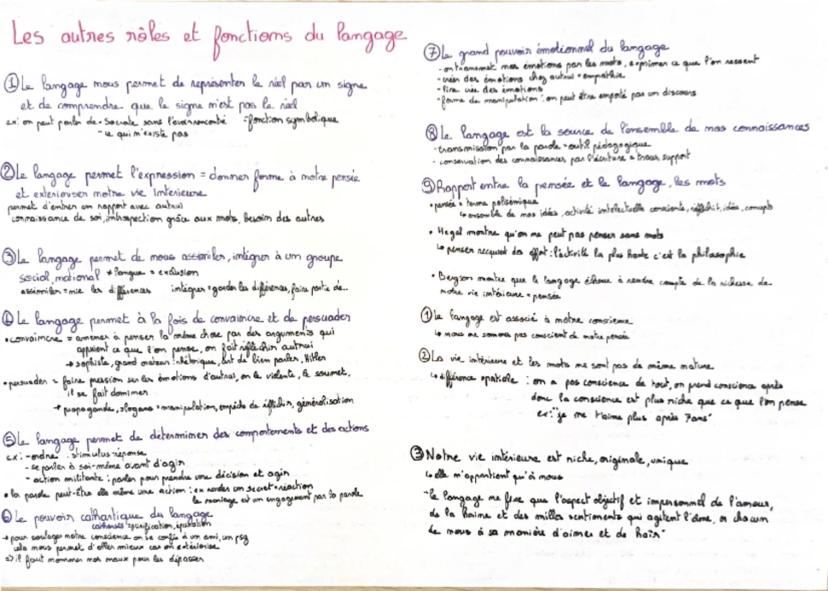 Les autres rôles et fonctions du langage
① Le langage nous permet de représenter le réel par un signe
et de comprendre que le signe n'est pas le réel
ex: on peut parler de - Socrate sans l'avoir rencontré = fonction symbolique
- ce qui n'existe pas
② Le langage permet l'expression = donner forme à notre pensée
et extérioriser notre vie intérieure
permet d'entrer en rapport avec autrui
connaissance de soi, introspection grâce aux mots, besoin des autres
③ Le langage permet de nous assimiler, intégrer à un groupe
social, national ≠ langue = exclusion
assimiler = nie les différences intégrer = garder les différences, faire partie de...
④ Le langage permet à la fois de convaincre et de persuader
• convaincre = amener à penser la même chose par des arguments qui
appuient ce que l'on pense, on fait réfléchir autrui
→ sophiste, grand orateur : rhétorique, but de bien parler, Hitler
• persuader = faire pression sur les émotions d'autrui, on le violente, le soumet,
il se fait dominer
→ propagande, slogans = manipulation, empêche de réfléchir, généralisation
⑤ Le langage permet de déterminer des comportements et des actions
ex: - ordre : stimulus réponse
- se parler à soi-même avant d'agir
- action militante : parler pour prendre une décision et agir
• la parole peut-être elle même une action : en un secret = réaction
le mariage est un engagement par la parole
⑥ Le pouvoir cathartique du langage
catharsis = purification, épuration
→ pour soulager notre conscience on se confie à un ami, un psy
cela nous permet d'aller mieux car on extériorise
=> il faut nommer nos maux pour les dépasser
⑦ Le grand pouvoir émotionnel du langage
- on transmet nos émotions par les mots, exprimer ce que l'on ressent
- créer des émotions chez autrui = empathie
- lire crée des émotions
- forme de manipulation : on peut être emporté par un discours
⑧ Le langage est la source de l'ensemble de nos connaissances
- transmission par la parole = outil pédagogique
- conservation des connaissances par l'écriture = traces, support
⑨ Rapport entre la pensée et le langage, les mots
• pensée = terme polysémique
↳ ensemble de nos idées, activité intellectuelle consciente, réfléchit, idées, concepts
• Hegel montre qu'on ne peut pas penser sans mots
↳ penser requiert des effort : l'activité la plus haute c'est la philosophie
• Bergson montre que le langage échoue à rendre compte de la richesse de
notre vie intérieure = pensée
① Le langage est associé à notre conscience
↳ nous ne sommes pas conscient de notre pensée
② La vie intérieure et les mots ne sont pas de même nature
↳ différence spatiale : on a pas conscience de tout, on prend conscience après
donc la conscience est plus riche que ce que l'on pense
ex: "je ne t'aime plus après 7ans"
③ Notre vie intérieure est riche, originale, unique
↳ elle n'appartient qu'à nous
"le langage ne fixe que l'aspect objectif et impersonnel de l'amour,
de la haine et des milles sentiments qui agitent l'âme, or chacun
de nous a sa manière d'aimer et de haïr"